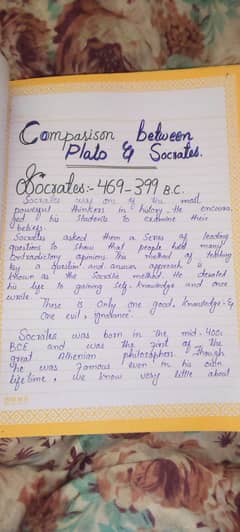 Comparison between
Plato & Socrates.
Socrates:- 469-399 B.C.
Socrates was one of the most
powerful thinkers in history. He encoura-
ged his students to examine their
beliefs.
Socrates asked them a series of leading
questions to show that people held many
contradictory opinions. This method of teaching
by a question and answer approach is
known as the Socratic method. He devoted
his life to gaining self-knowledge and once
wrote.
There is only one good, knowledge &
one evil, ignorance.
Socrates was born in the mid-400s
BCE and was the first of the
great Athenian philosophers. Though
he was famous even in his own
life time, we know very little about